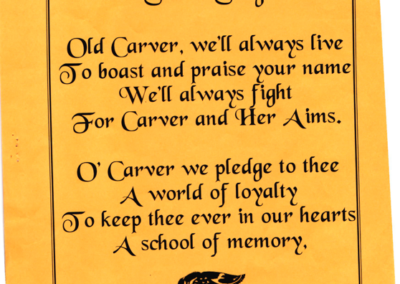 Old Carver, we'll always live
To boast and praise your name
We'll always fight
For Carver and Her Aims.
O' Carver we pledge to thee
A world of loyalty
To keep thee ever in our hearts
A school of memory,